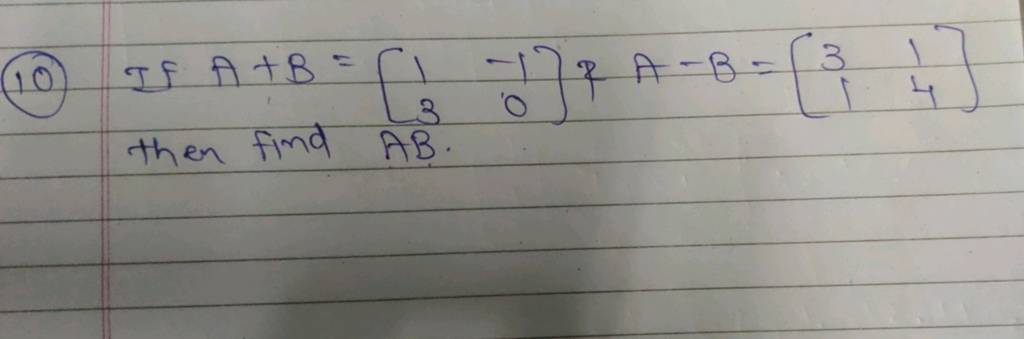 (10) If A+B = [1 -1; 3 0] & A-B = [3 1; 1 4]
then find AB.